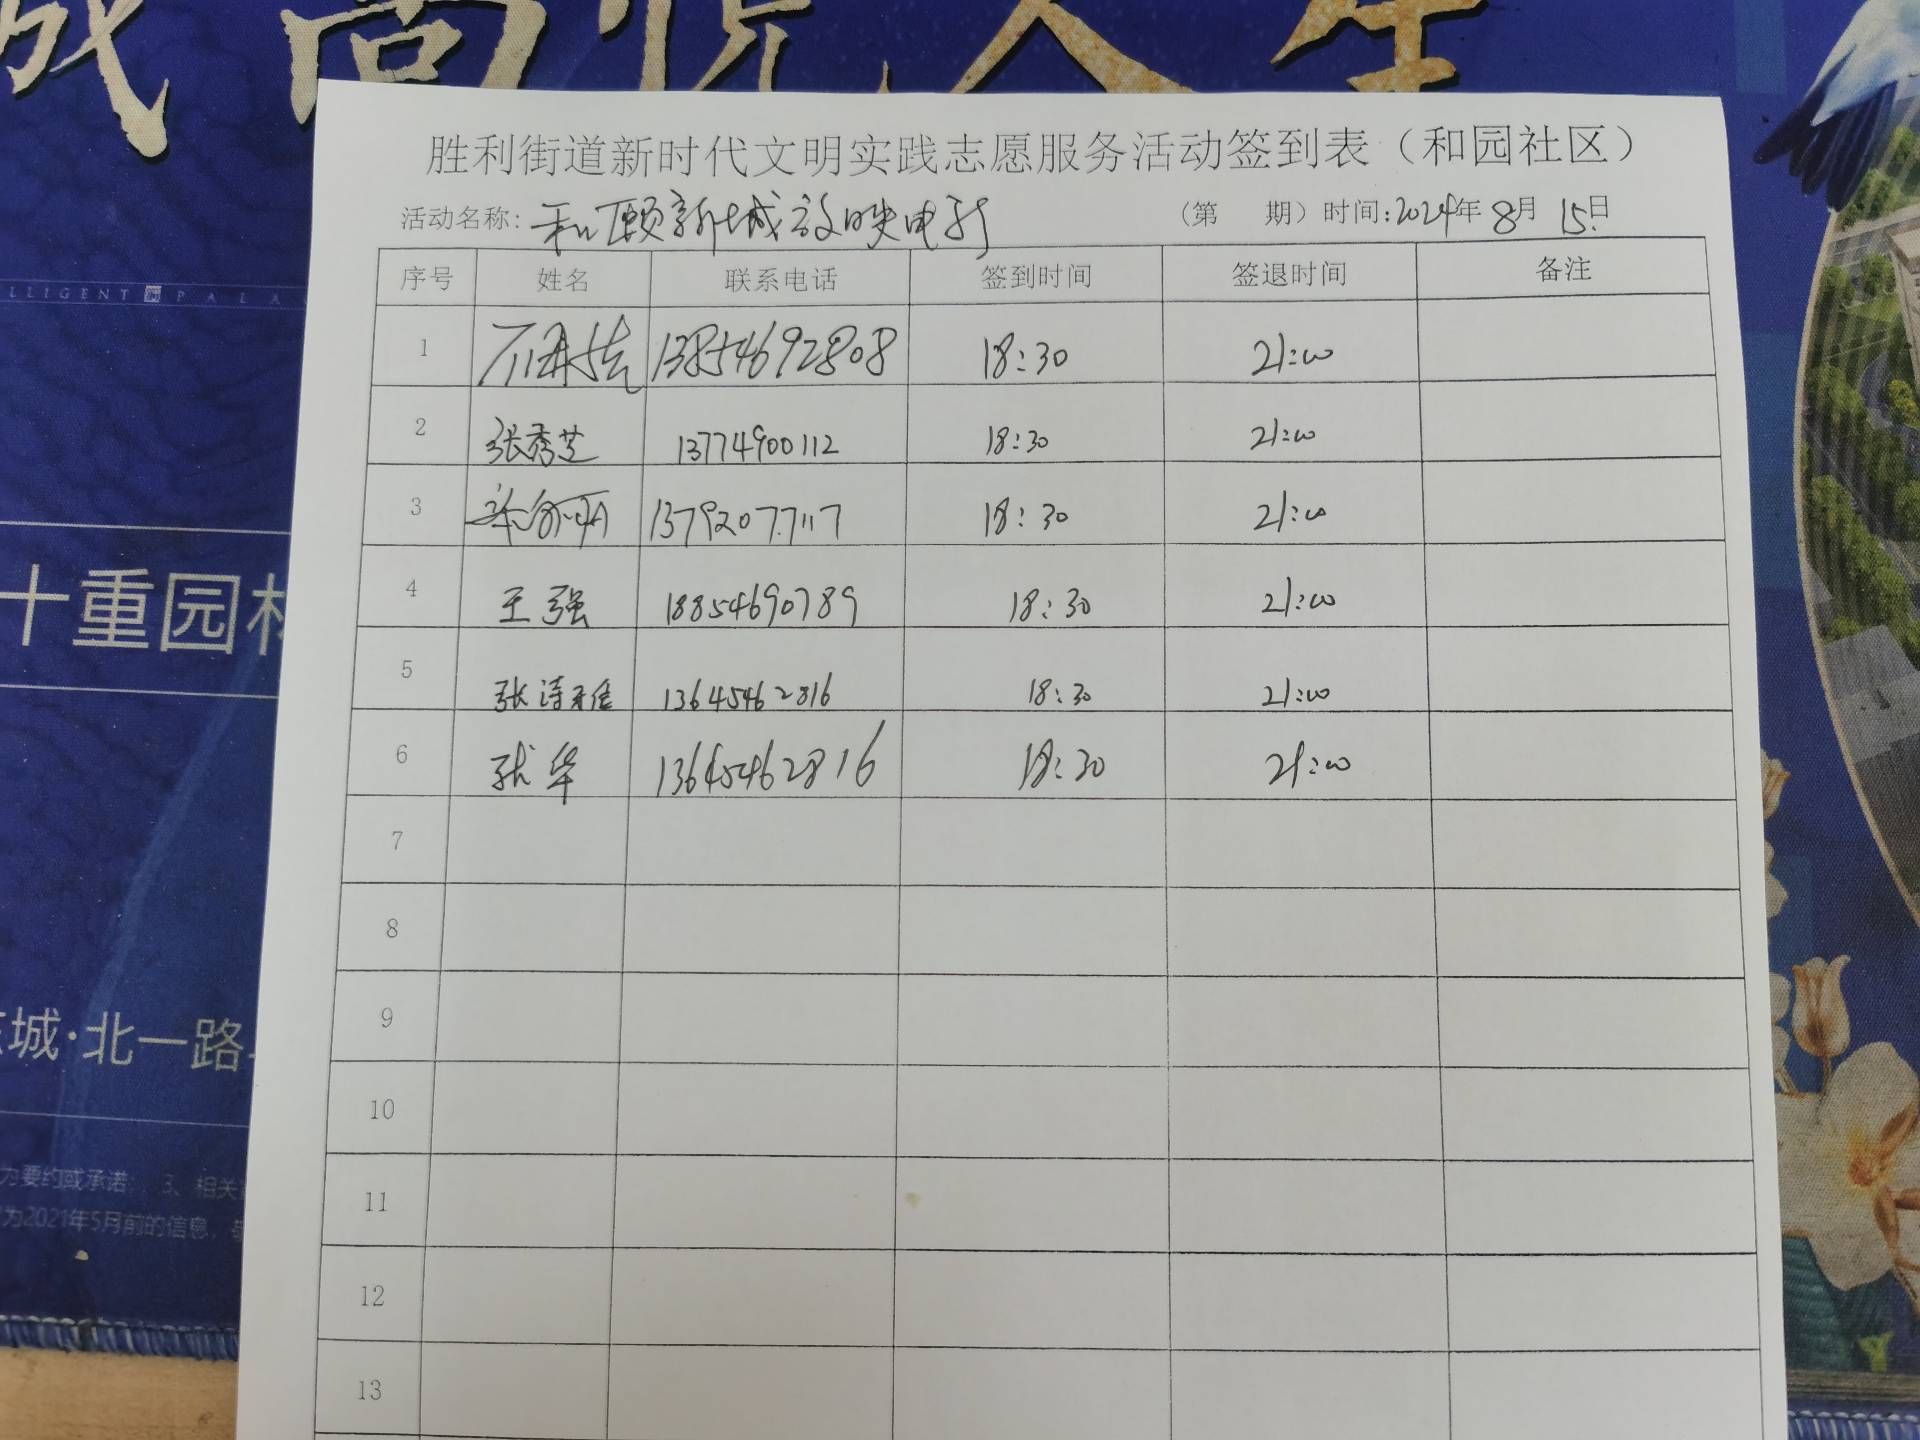 城 尚悦人生
胜利街道新时代文明实践志愿服务活动签到表（和园社区）
活动名称：和颐新城放映电影 （第 期）时间：2024年8月15日
LLIGENT PALA
序号 姓名 联系电话 签到时间 签退时间 备注
1 13854692808 18:30 21:00
2 张秀芝 13774900112 18:30 21:00
3 13792077117 18:30 21:00
4 王强 18854690789 18:30 21:00
5 张诗雅 13645462816 18:30 21:00
6 张华 13645462816 18:30 21:00
7
8
9
10
11
12
13
十重园林
城·北一路
为要约或承诺；3、相关
为2021年5月前的信息，